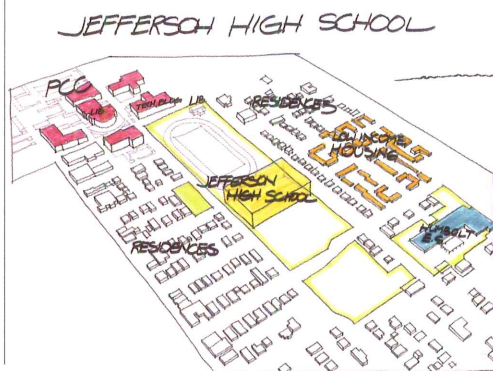 JEFFERSON HIGH SCHOOL
PCC
LIB
TECH BLDG
LIB
RESIDENCES
LOW INCOME
HOUSING
JEFFERSON
HIGH SCHOOL
HUMBOLT
E.S.
RESIDENCES